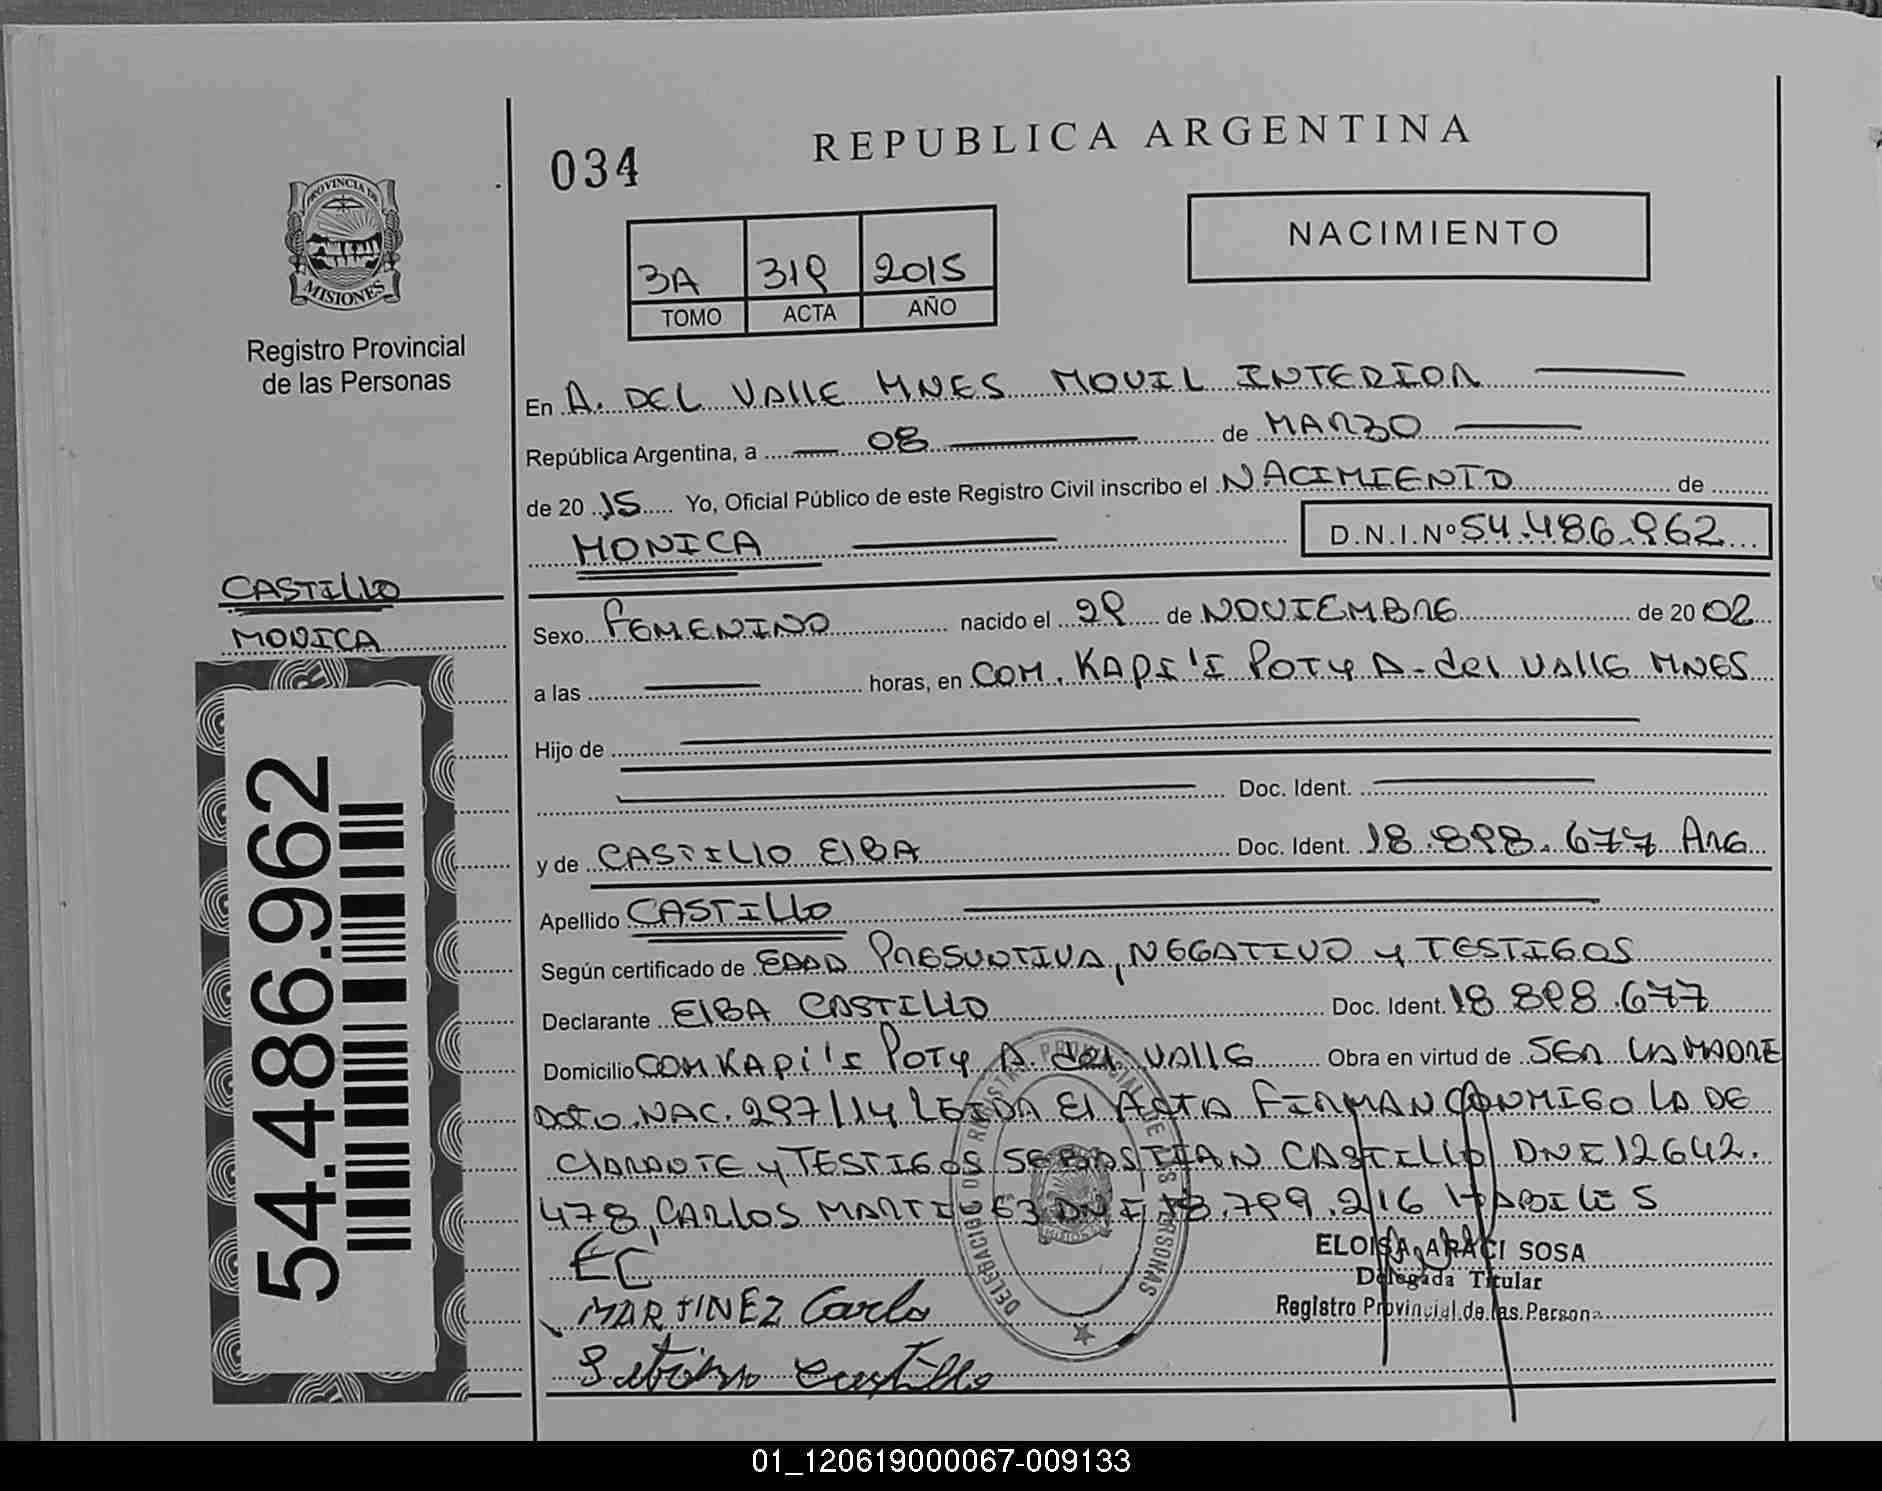 034
REPUBLICA ARGENTINA
PROVINCIA DE
MISIONES
Registro Provincial
de las Personas
NACIMIENTO
3A 319 2015
TOMO ACTA AÑO
En A. DEL VALLE MNES MOVIL INTERIOR
República Argentina, a 08 de MARZO
de 2015 Yo, Oficial Público de este Registro Civil inscribo el NACIMIENTO de
MONICA D.N.I.Nº 54.486.962
CASTILLO
MONICA
Sexo FEMENINO nacido el 29 de NOVIEMBRE de 2002
a las horas, en COM. KAPI'I POTY A. del VALLE MNES
Hijo de
Doc. Ident.
y de CASTILLO ELBA Doc. Ident. 18.898.677 ARG
Apellido CASTILLO
Según certificado de EDAD PRESUNTIVA, NEGATIVO y TESTIGOS
Declarante ELBA CASTILLO Doc. Ident. 18.898.677
Domicilio COM KAPI'I POTY A. del VALLE Obra en virtud de SER LA MADRE
DCTO. NAC. 297/14 LEIDA El ACTA FIRMAN CONMIGO LA DE
CLARANTE y TESTIGOS SEBASTIAN CASTILLO DNI 12642.
478, CARLOS MARTINEZ DNI 18.799.216 HABILES
EC
MARTINEZ Carlo
Castillo
ELOISA ARACI SOSA
Delegada Titular
Registro Provincial de las Persona
DELEGACION DEL REGISTRO PROVINCIAL DE LAS PERSONAS
54.486.962
01_120619000067-009133